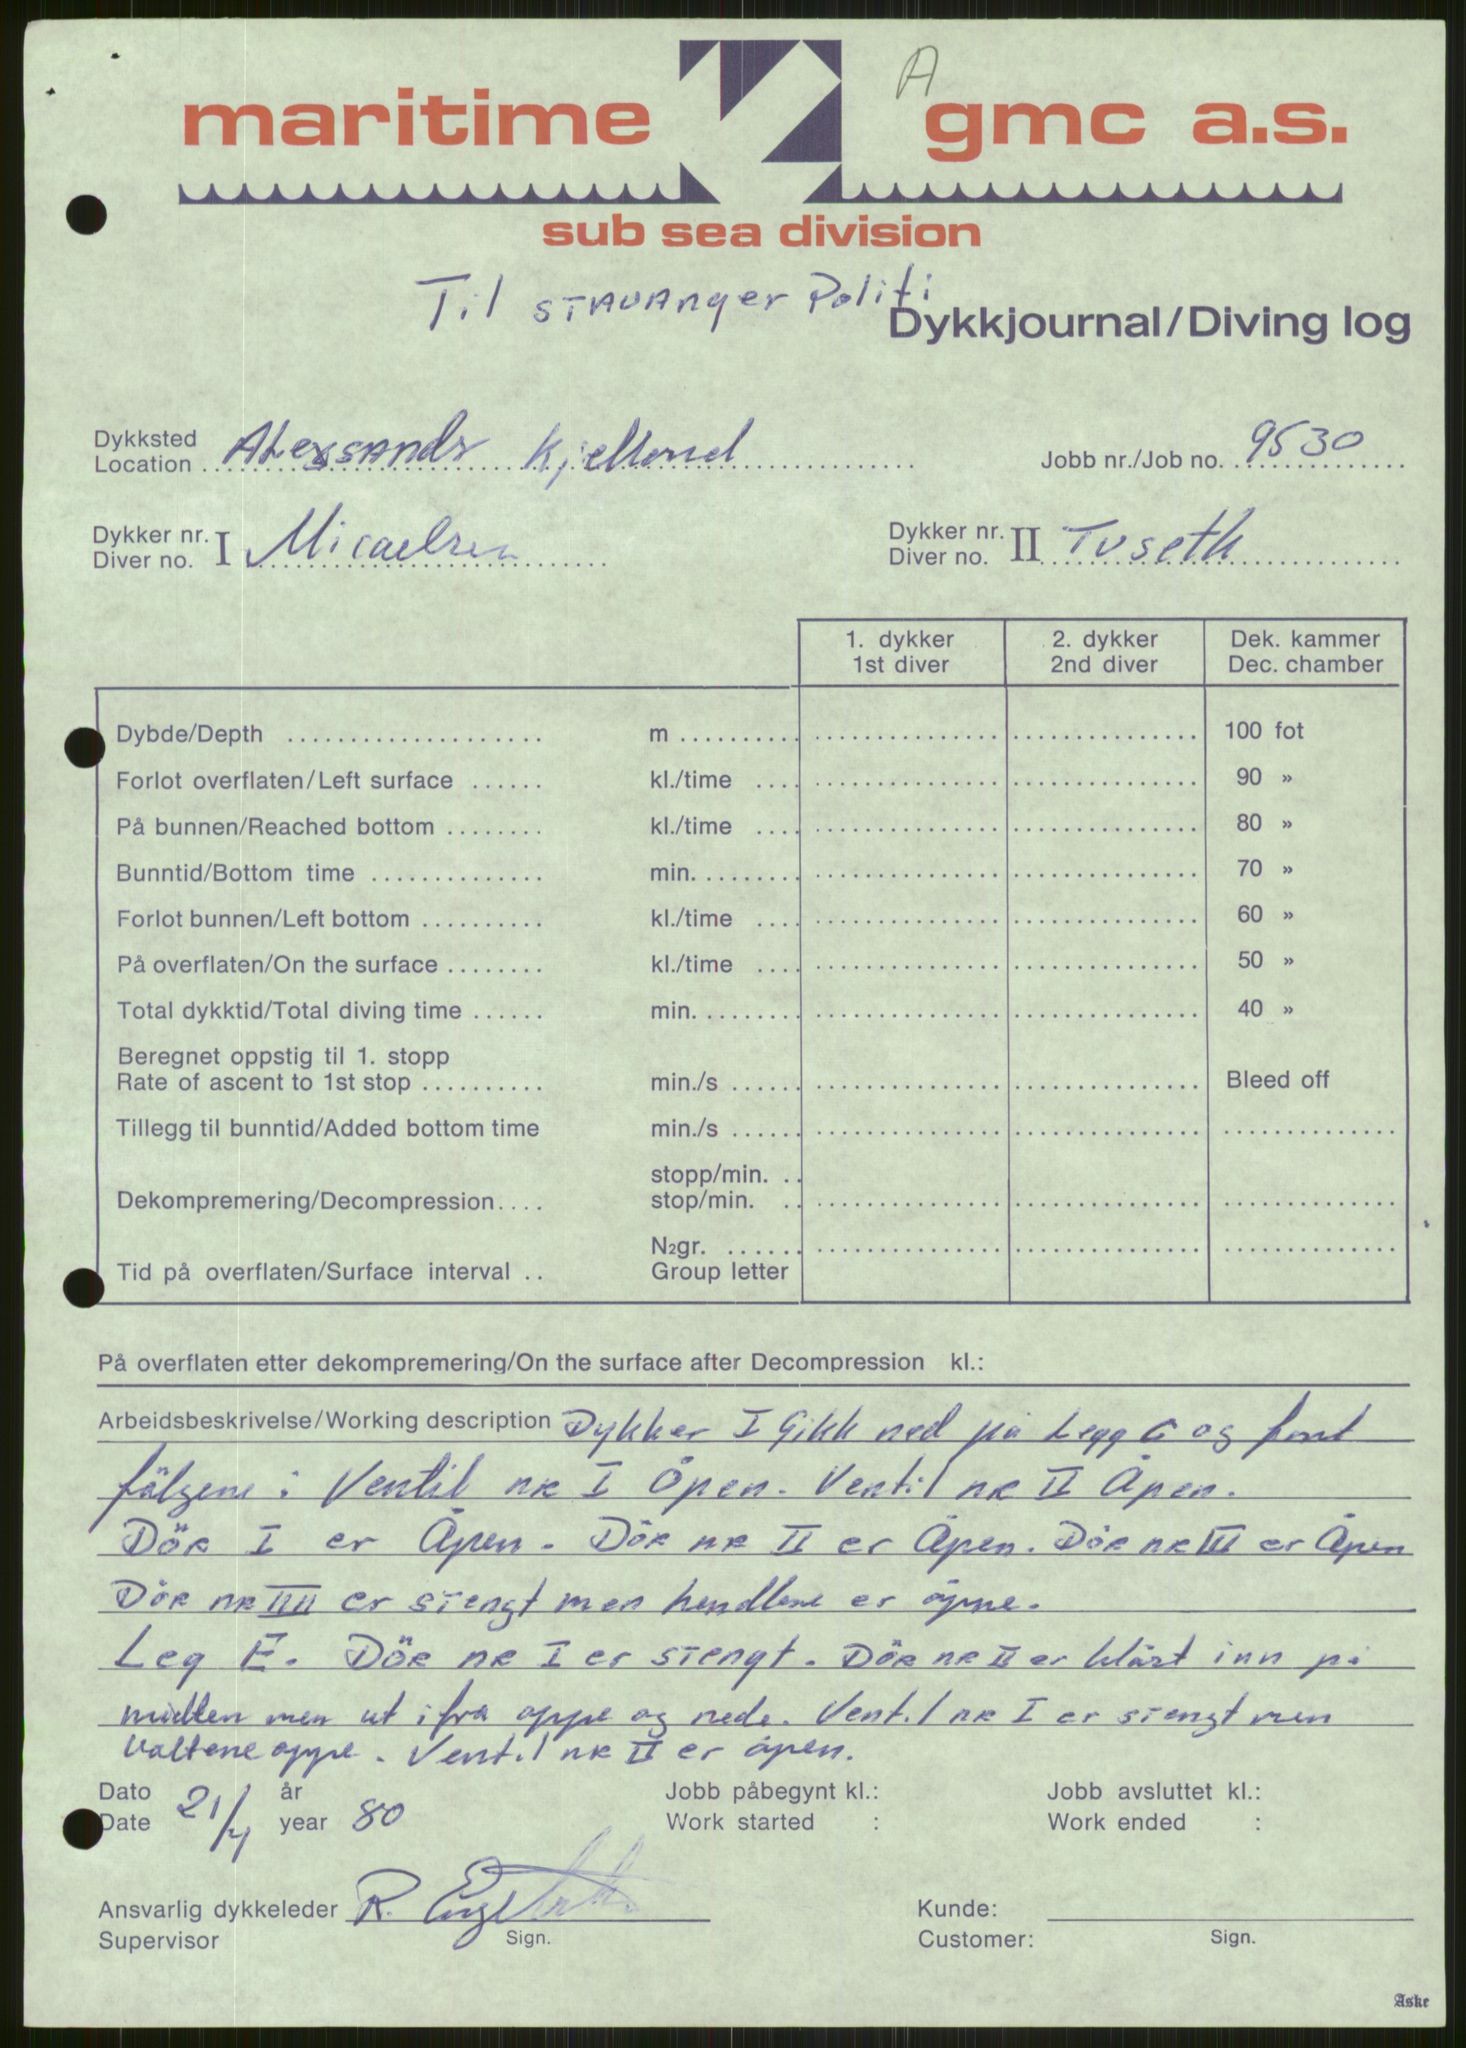 A
maritime gmc a.s.
sub sea division
Til STAVANger Politi
Dykkjournal/Diving log
Dykksted
Location Alexsands Kjelland
Jobb nr./Job no. 9530
Dykker nr. I Micaelsen
Diver no.
Dykker nr. II Tuseth
Diver no.
1. dykker 2. dykker Dek. kammer
1st diver 2nd diver Dec. chamber
Dybde/Depth m 100 fot
Forlot overflaten/Left surface kl./time 90 »
På bunnen/Reached bottom kl./time 80 »
Bunntid/Bottom time min. 70 »
Forlot bunnen/Left bottom kl./time 60 »
På overflaten/On the surface kl./time 50 »
Total dykktid/Total diving time min. 40 »
Beregnet oppstig til 1. stopp
Rate of ascent to 1st stop min./s Bleed off
Tillegg til bunntid/Added bottom time min./s
stopp/min.
Dekompremering/Decompression stop/min.
N2gr.
Tid på overflaten/Surface interval Group letter
På overflaten etter dekompremering/On the surface after Decompression kl.:
Arbeidsbeskrivelse/Working description Dykker I Gikk ned på Legg C og fant
fölgene: Ventil nR I Åpen. Ventil nR II Åpen.
Dör I er Åpen. Dör nR II er Åpen. Dör nR III er Åpen
Dör nR IIII er stengt men hendlene er åpne.
Leg E. Dör nR I er stengt. Dör nR II er blåst inn på
midten men ut ifra oppe og nede. Ventil nR I er stengt men
oppe. Ventil nR II er åpen.
Dato 21/4 år
Date year 80
Jobb påbegynt kl.:
Work started :
Jobb avsluttet kl.:
Work ended :
Ansvarlig dykkeleder R.
Supervisor Sign.
Kunde:
Customer: Sign.
Aske